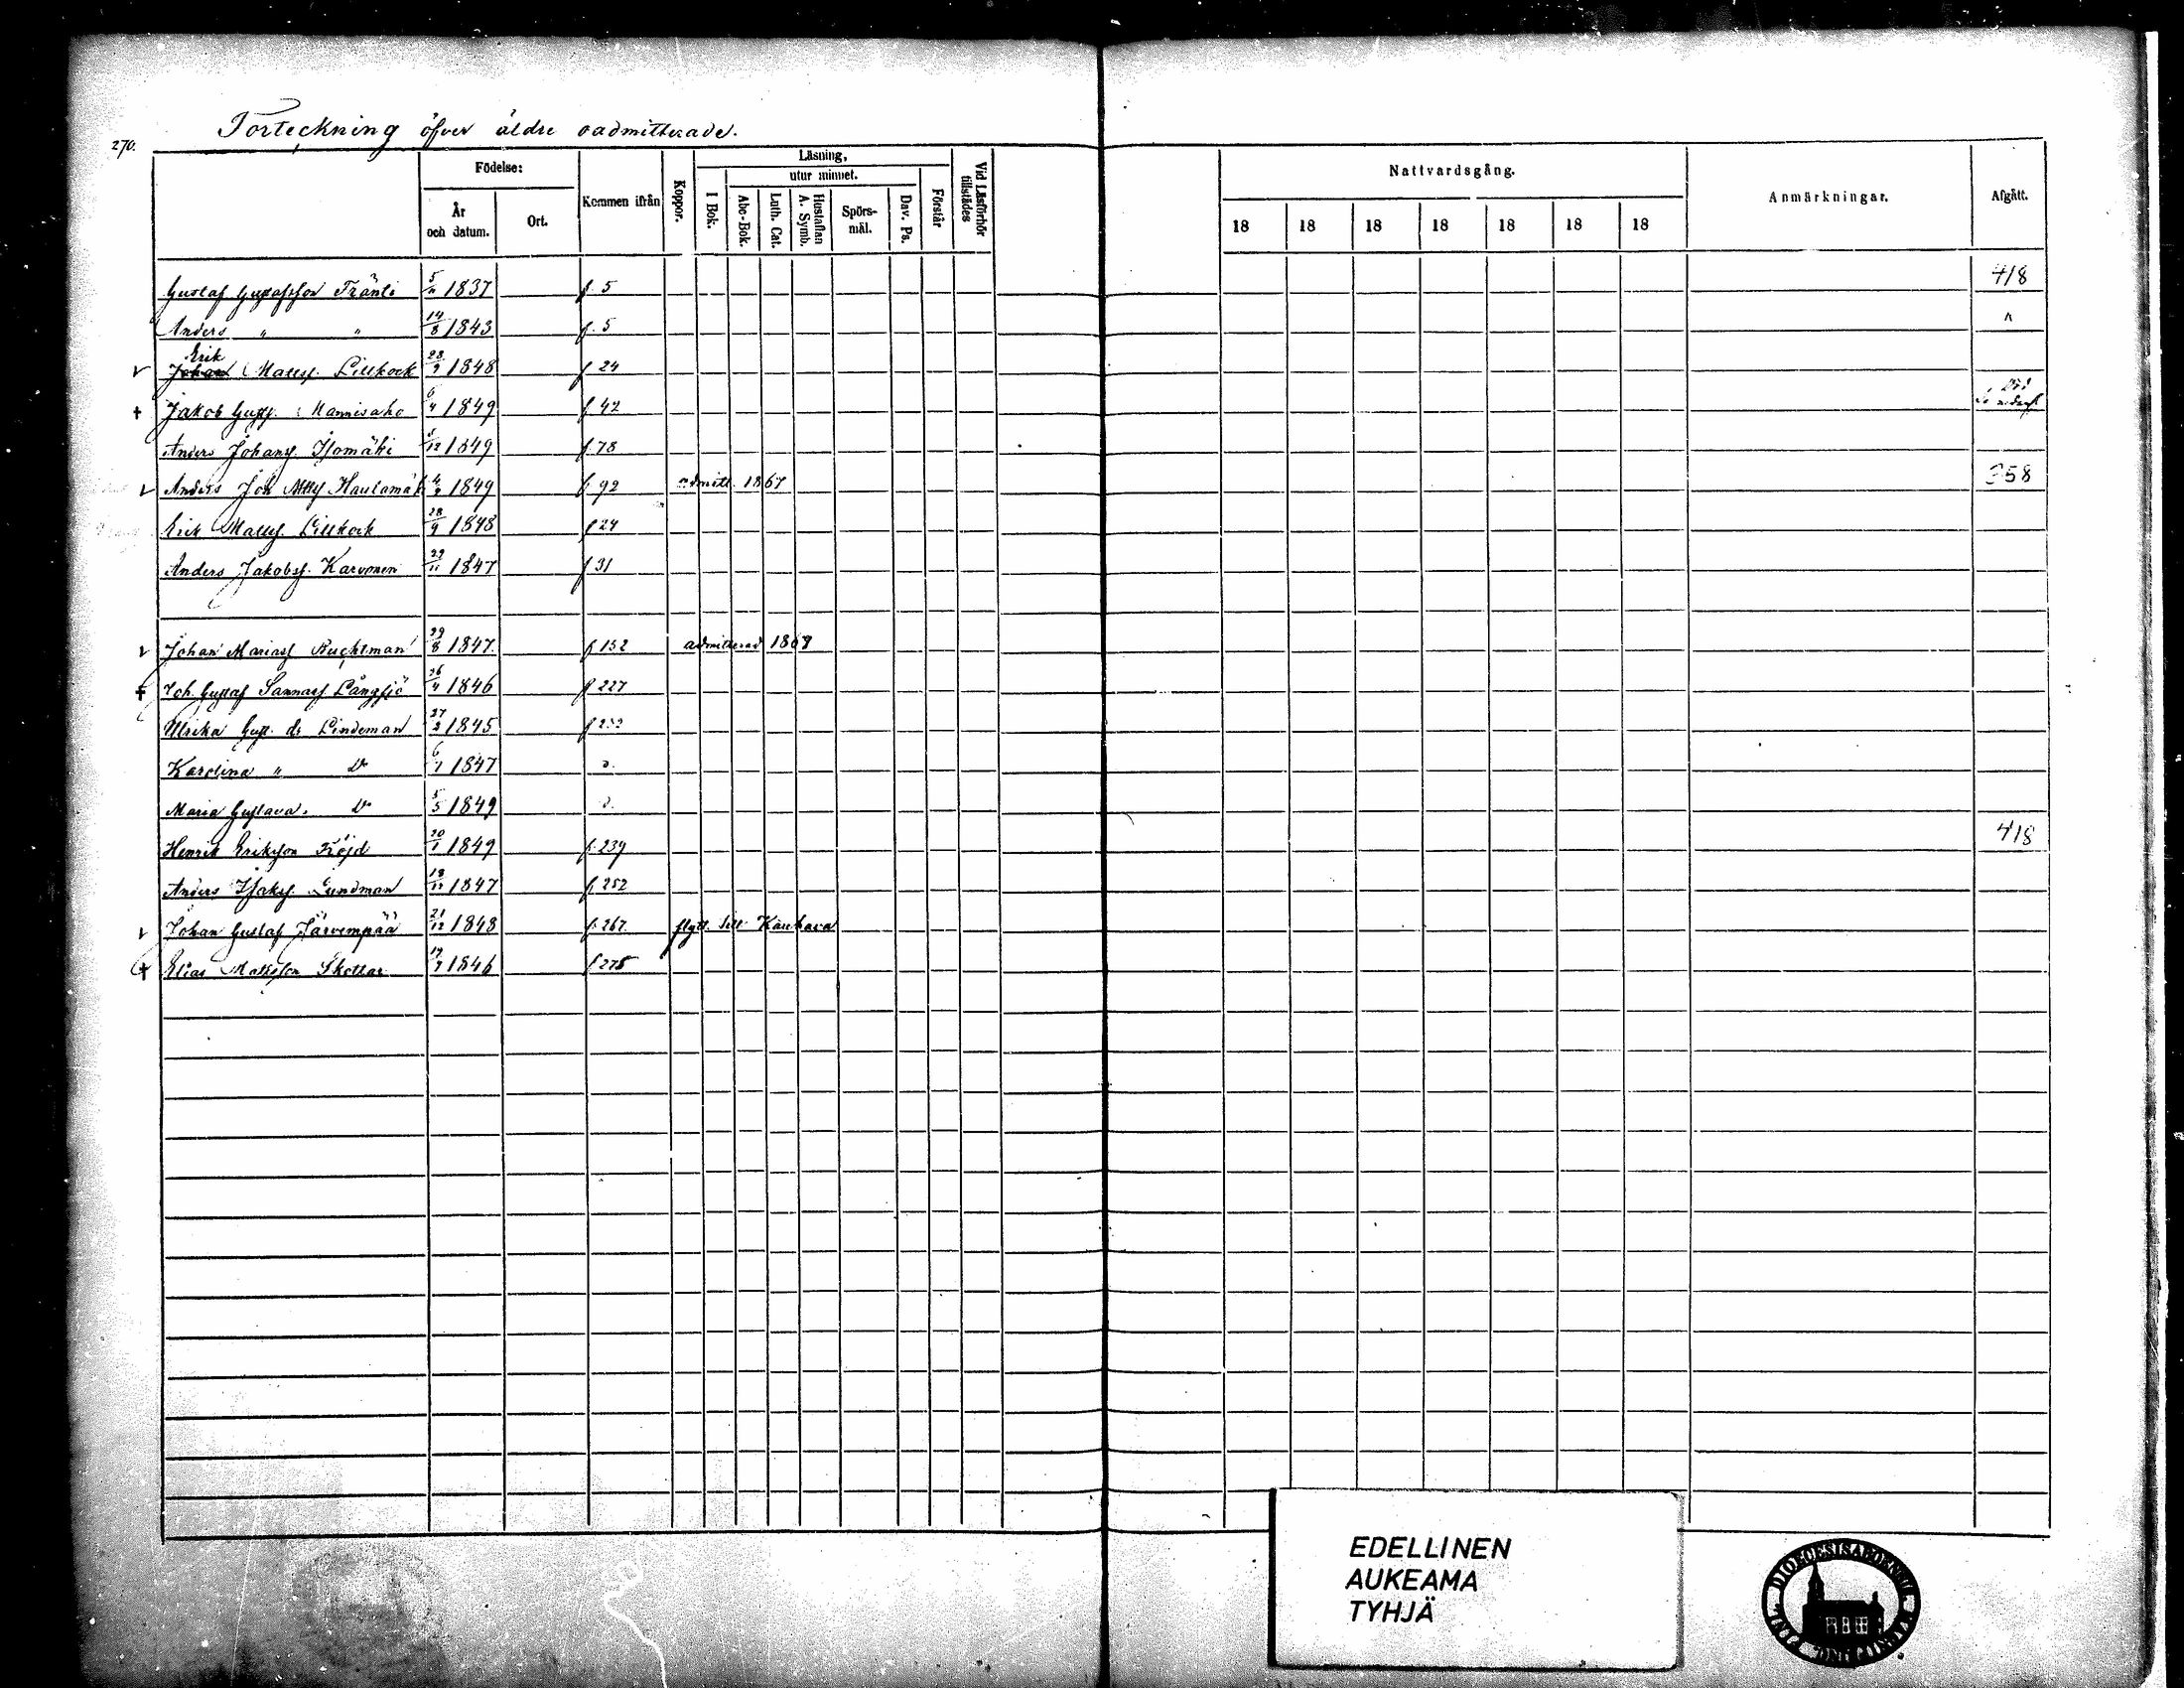 270.
Förteckning öfver äldre oadmitterade.
Födelse:
År och datum.
Ort.
Kommen ifrån
Koppor.
Läsning,
utur minnet.
I Bok.
Abc-Bok.
Luth. Cat.
Hustaflan A. Symb.
Spörs-mål.
Dav. Ps.
Förstår
Vid Läsförhör tillstädes
Nattvardsgång.
18 18 18 18 18 18 18
Anmärkningar.
Afgått.
Gustaf Gustafsson Tränti 1837 f. 5 418
Anders " " 14/8 1843 f. 5 "
Erik
Johan Mattss. Lillkock 28/9 1848 f 24
† Jakob Gusts. Mannisaho 6/4 1849 f. 42
Anders Johans. Isomäki 1849 f. 78
Anders Joh Mtts Hautamäk 1849 f. 92 admitt. 1867 358
Erik Mattss. Lillkock 28/9 1848 f 24
Anders Jakobss. Karvonen 29/11 1847 f 31
Johan Mariass Ruchtman 29/8 1847. f 152 admitterad 1867
† Joh. Gustaf Sannass Långsjö 26/4 1846 f 227
Ulrika Gust. dr Lindeman 27/2 1845
Karolina " Do 6/1 1847 d.
Maria Gustava. Do 5/5 1849 d.
Henrik Eriksson Fröjd 20/1 1849 f. 239 418
Anders Isaks. Lundman 1847 f. 252
Johan Gustaf Järvempää 21/12 1848 f. 267. flytt. till Kauhava
† Elias Mattsson Skottar 1846 f 275
EDELLINEN
AUKEAMA
TYHJÄ